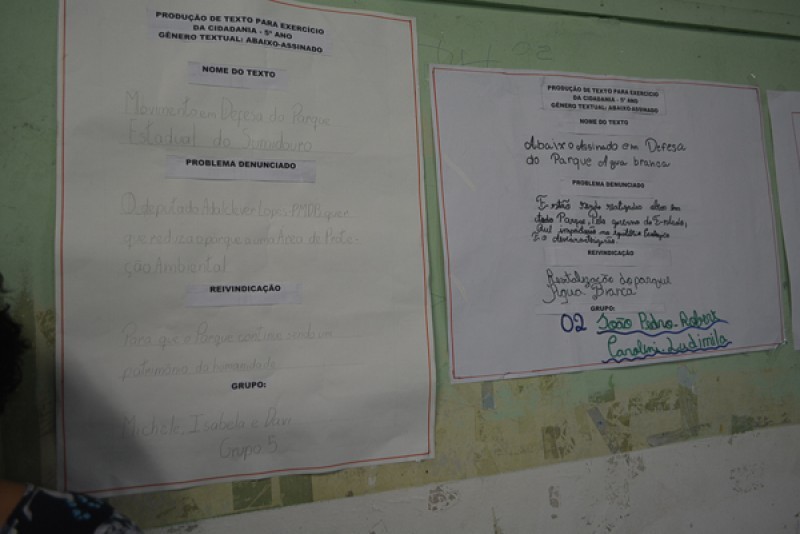 PRODUÇÃO DE TEXTO PARA EXERCÍCIO
DA CIDADANIA - 5º ANO
GÊNERO TEXTUAL: ABAIXO-ASSINADO
NOME DO TEXTO
Movimento em Defesa do Parque
Estadual do Sumidouro
PROBLEMA DENUNCIADO
O deputado Adalclever Lopes-PMDB, quer
que reduca o parque a uma Area de Prote-
ção Ambiental
REIVINDICAÇÃO
Para que o Parque continue sendo um
patrimônio da humanidade
GRUPO:
Michele, Isabela e
Grupo 5
PRODUÇÃO DE TEXTO PARA EXERCÍCIO
DA CIDADANIA - 5º ANO
GÊNERO TEXTUAL: ABAIXO-ASSINADO
NOME DO TEXTO
Abaixo Assinado em Defesa
do Parque Água branca
PROBLEMA DENUNCIADO
Estão sendo realizadas em
todo Parque, Pelo governo do Estado,
no equilíbrio Ecológico
REIVINDICAÇÃO
do parque
Água Branca
GRUPO:
02 João Pedro Robert
Ludimila